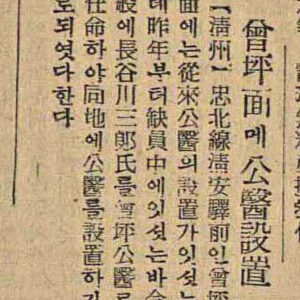 曾坪面에公醫設置
【淸州】忠北線淸安驛前인曾坪
面에는從來公醫의設置가잇섯는
데昨年부터缺員中에잇섯는바今
般에長谷川三郞氏를曾坪公醫로
任命하야同地에公醫를設置하기
로되엿다한다